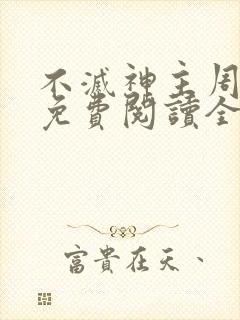 不滅神主周
免費閱讀全
富貴在天、